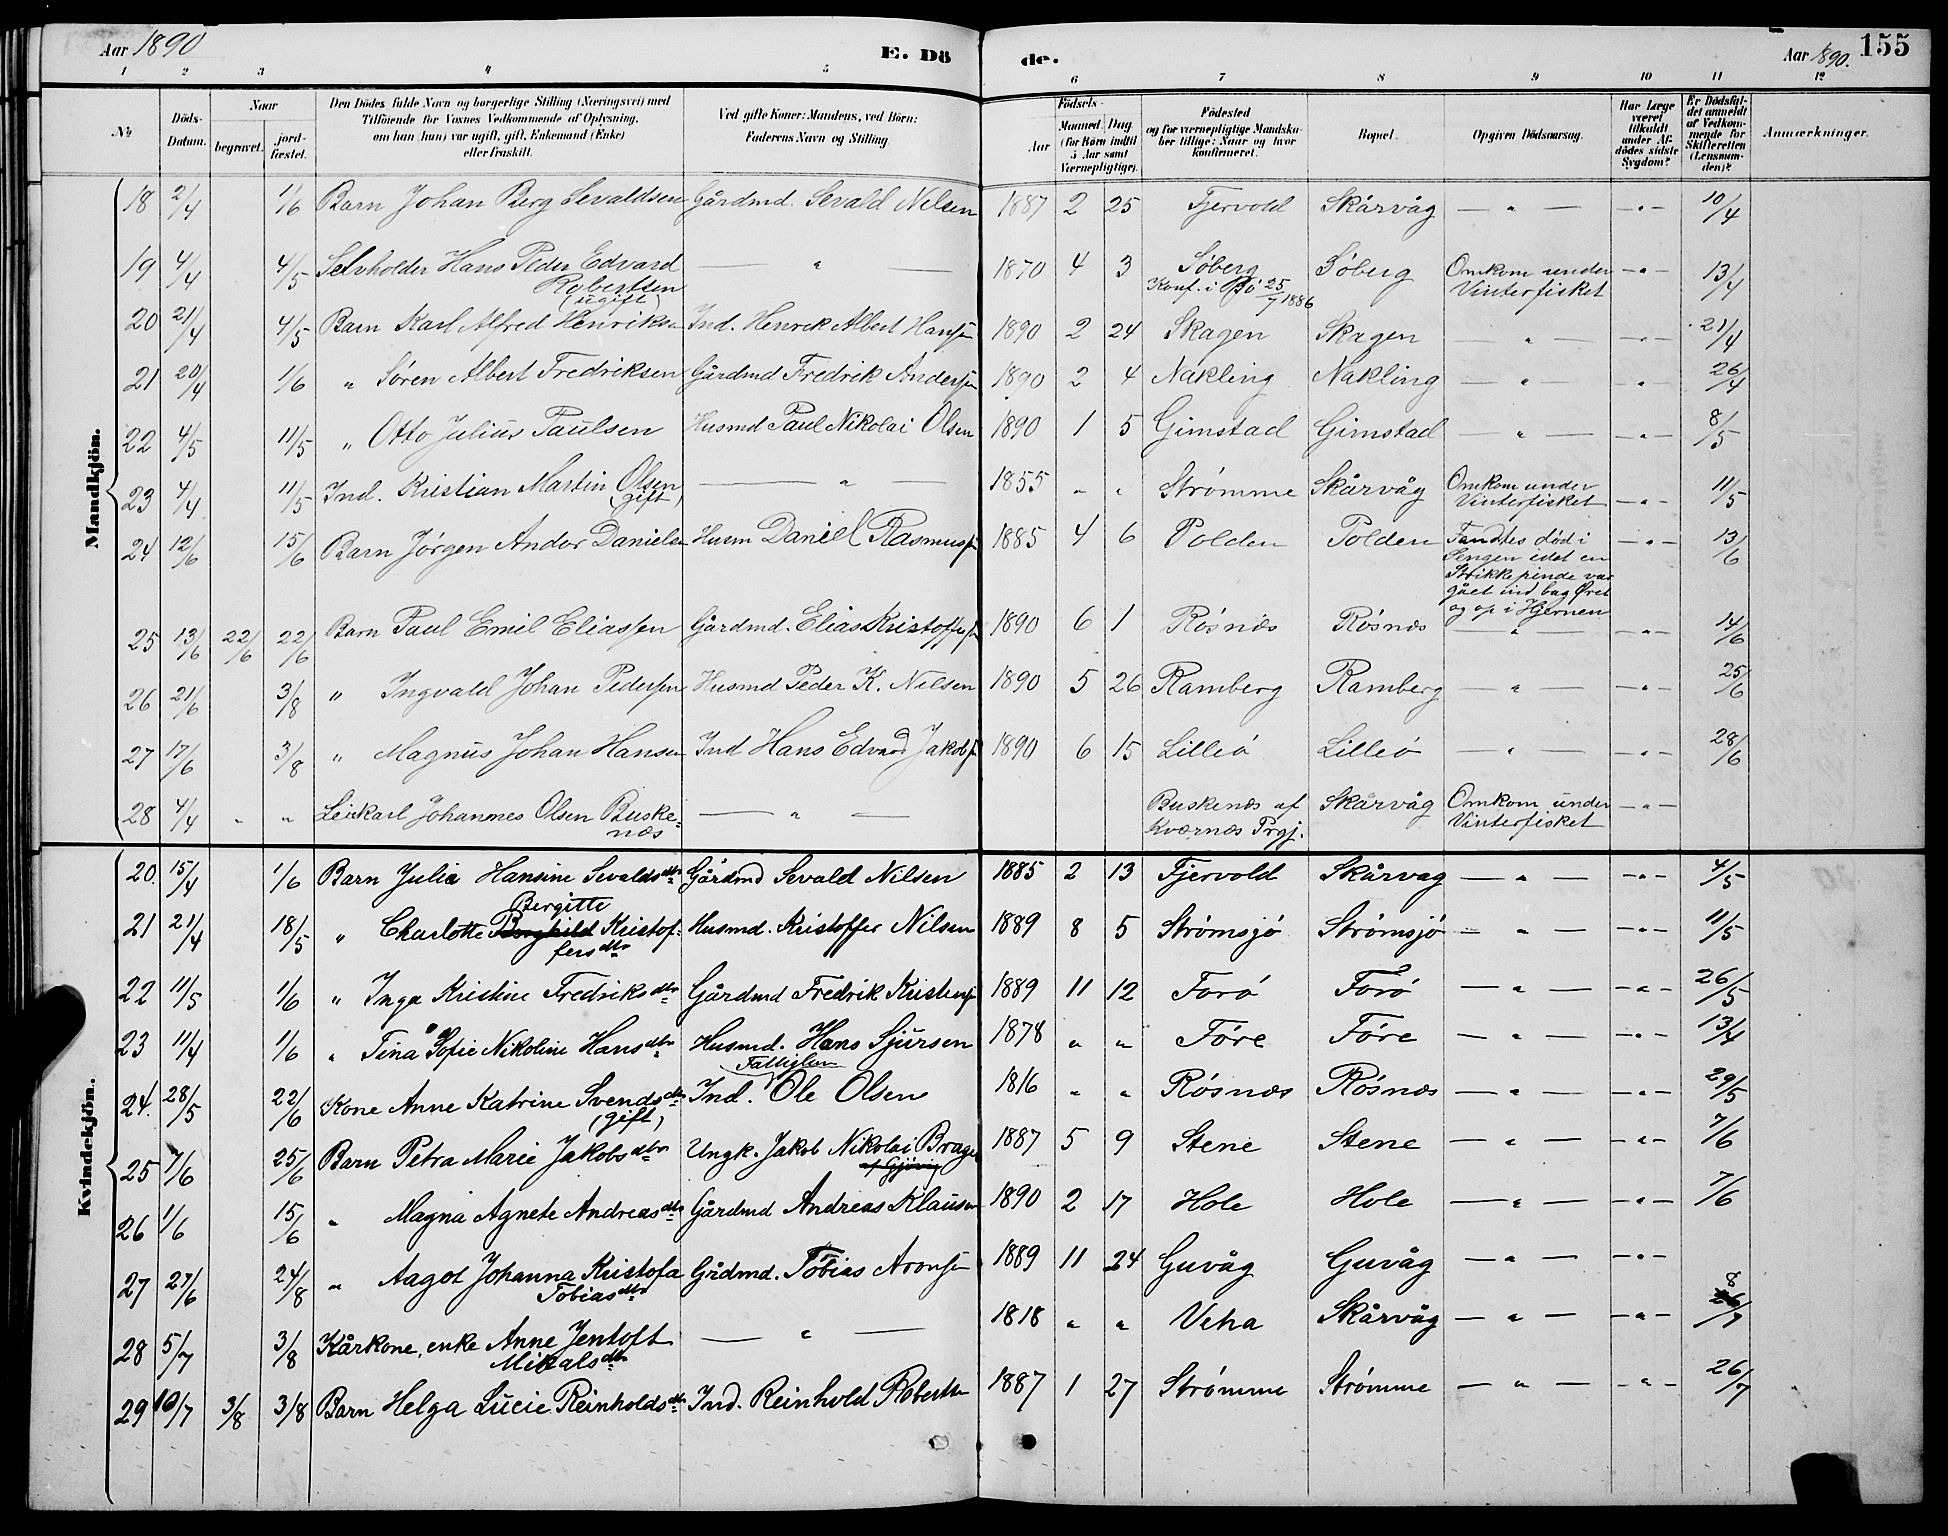 Aar 1890 E. Dö de. Aar 1890. 155
1 2 3 4 5 6 7 8 9 10 11 12
№ Döds-Datum. Naar begravet. jord-fæstet. Den Dödes fulde Navn og borgerlige Stilling (Næringsvei) med Tilföiende for Voxnes Vedkommende af Oplysning, om han (hun) var ugift, gift, Enkemand (Enke) eller fraskilt. Ved gifte Koner: Mandens, ved Börn: Faderens Navn og Stilling. Födsels- Aar Maaned Dag (for Börn indtil 5 Aar samt Værnepligtige). Födested og for værnepligtige Mandskaber tillige: Naar og hvor konfirmeret. Bopæl. Opgiven Dödsaarsag. Har Læge været tilkaldt under Afdödes sidste Sygdom? Er Dödsfaldet anmeldt af Vedkommende for Skifteretten (Lensmanden)? Anmærkninger.
Mandkjön.
18 2/4 1/6 Barn Johan Berg Sevaldsen Gårdmd. Sevald Nilsen 1887 2 25 Fjervold Skårvåg — " — -"- 10/4
19 4/4 4/5 Selvholder Hans Peder Edvard — " — 1870 4 3 Söberg Söberg Omkom under -"- 13/4
Robertsen Konf. i Bö 25/7 1886 Vinterfisket
(ugift)
20 21/4 4/5 Barn Karl Alfred Henriksen Ind. Henrik Albert Hansen 1890 2 24 Skagen Skagen — " — -"- 21/4
21 20/4 1/6 " Søren Albert Fredriksen Gårdmd Fredrik Andersen 1890 2 4 Nakling Nakling — " — " 26/4
22 4/5 11/5 " Otto Julius Paulsen Husmd Paul Nikolai Olsen 1890 1 5 Gimstad Gimstad — " — -"- 8/5
23 4/4 11/5 Ind. Kristian Martin Olsen — " — 1855 " " Strømme Skårvåg Omkom under -"- 11/5
(gift) Vinterfisket
24 12/6 15/6 Barn Jørgen Andor Danielsen Husm Daniel Rasmussen 1885 4 6 Polden Polden Fandtes död i -"- 13/6
Sengen idet en
Strikkepinde var
gået ind bag Øret
og op i Hjernen
25 13/6 22/6 22/6 Barn Paul Emil Eliassen Gårdmd. Elias Kristoffersen 1890 6 1 Rösnæs Rösnæs — " — -"- 14/6
26 21/6 3/8 " Ingvald Johan Pedersen Husmd Peder K. Nilsen 1890 5 26 Ramberg Ramberg — " — -"- 25/6
27 17/6 3/8 " Magnus Johan Hansen Ind Hans Edvard Jakobsen 1890 6 15 Lilleö Lilleö — " — -"- 28/6
28 4/4 " " Leiekarl Johannes Olsen Buske- — " — Buskenæs af Skårvåg Omkom under -"-
næs Kværnæs Prgj. Vinterfisket
Kvindekjön.
20. 15/4 1/6 Barn Julie Hansine Sevaldsdtr Gårdmd Sevald Nilsen 1885 2 13 Fjervold Skårvag — " — -"- 4/5
Bergitte
21 21/4 18/5 " Charlotte Borghild Kristof- Husmd. Kristoffer Nilsen 1889 8 5 Strømsjö Strømsjö — " — -"- 11/5
fersdtr
22 11/5 1/6 " Inga Kristine Fredriksdtr Gårdmd Fredrik Kristensen 1889 11 12 Forö Forö — " — -"- 26/5
23 11/4 1/6 " Tina Sofie Nikoline Hansdtr Husmd. Hans Sjursen 1878 " " Före Före — " — -"- 13/4
Fattiglem
24. 28/5 22/6 Kone Anne Katrine Svendsdtr Ind. Ole Olsen 1816 " " Rösnæs Rösnæs — " — -"- 29/5
(gift)
25 7/6 25/6 Barn Petra Marie Jakobsdtr Ungk. Jakob Nikolai Brage 1887 5 9 Stene Stene — " — -"- 7/6
af Gjövig
26 1/6 15/6 " Magna Agnete Andreasdtr Gårdmd Andreas Klausen 1890 2 17 Hole Hole — " — -"- 7/6
27 27/6 24/8 " Aagot Johanna Kristofa Gådmd. Tobias Aronsen 1889 11 24 Guvåg Guvåg — " — -"-
Tobiasdtr
28 5/7 3/8 Kårkone, enke Anne Jentoft — " — 1818 " " Veha Skårvåg — " — -"- 8/7
Mikalsdtr
29 10/7 3/8 3/8 Barn Helga Lucie Reinholdsdtr Ind. Reinhold Robertsen 1887 1 27 Strømme Strömme — " — -"- 26/7